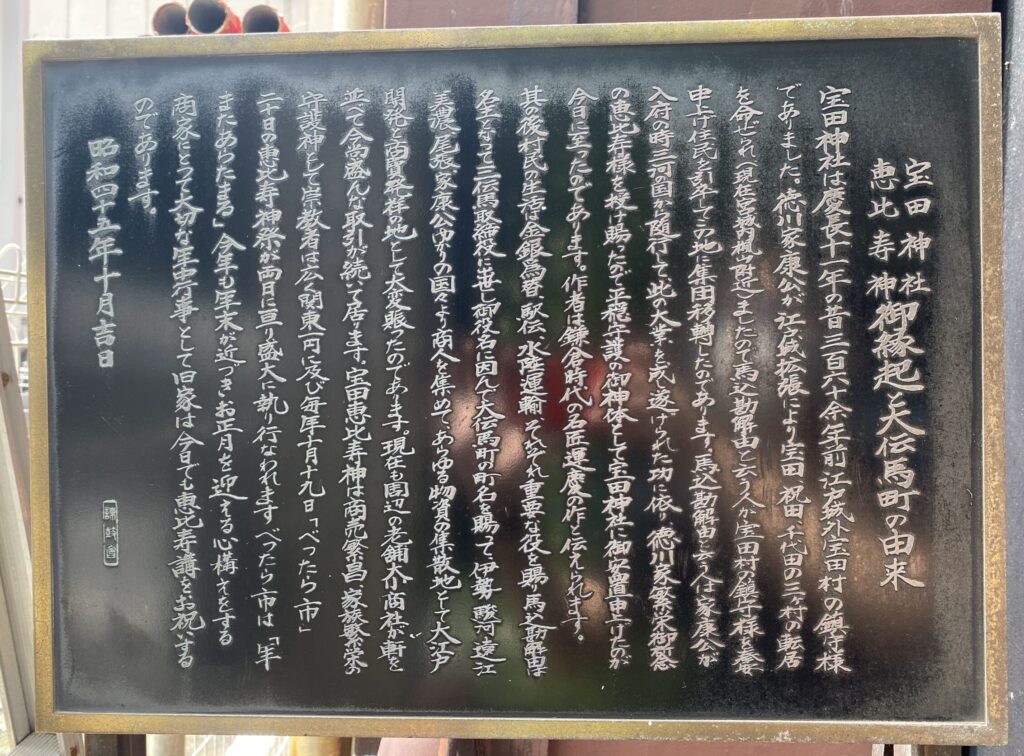 宝田神社
恵比寿神
御縁起と大伝馬町の由来
宝田神社は慶長十一年の昔三百六十余年前江戸城外宝田村の鎮守様
でありました、徳川家康公が江戸城拡張により宝田、祝田、千代田の三ヶ村の転居
を命ぜられ(現在宮城内楓山附近)ましたので馬込勘解由と云う人が宝田村の鎮守様を奉安
申上げ住民を引率してこの地に集団移転したのであります、馬込勘解由と云う人は家康公が
入府の時三河国から随行して此の大業を成し遂げられた功に依り、徳川家繁栄御祈念
の恵比寿様を授け賜ったので平穏守護の御神体として宝田神社に御安置申上げたのが
今日に至ったのであります。作者は鎌倉時代の名匠運慶の作と伝えられます。
其の後村民の生活は金銀為替、駅伝、水陸運輸、それぞれ重要な役を賜り馬込勘解由は
名主となって三伝馬取締役に出世し御役名に因んで大伝馬町の町名を賜って伊勢、駿河、遠江
美濃、尾張、家康公ゆかりの国々より商人を集めて、あらゆる物資の集散地として大江戸
開発と商賈発祥の地として大変賑ったのであります。現在も周辺の老舗大小商社が軒を
並べて今尚盛んな取引が続いて居ります。宝田恵比寿神は商売繁昌、家族繁栄の
守護神として崇敬者は広く関東一円に及び毎年十月十九日「べったら市」
二十日の恵比寿神祭が両日に亘り盛大に執り行なわれますべったら市は「年
またあらたまる」今年も年末が近づきお正月を迎える心構えをする
商家にとって大切な年中行事として旧家は今日でも恵比寿講をお祝いする
のであります。
昭和四十五年十月吉日